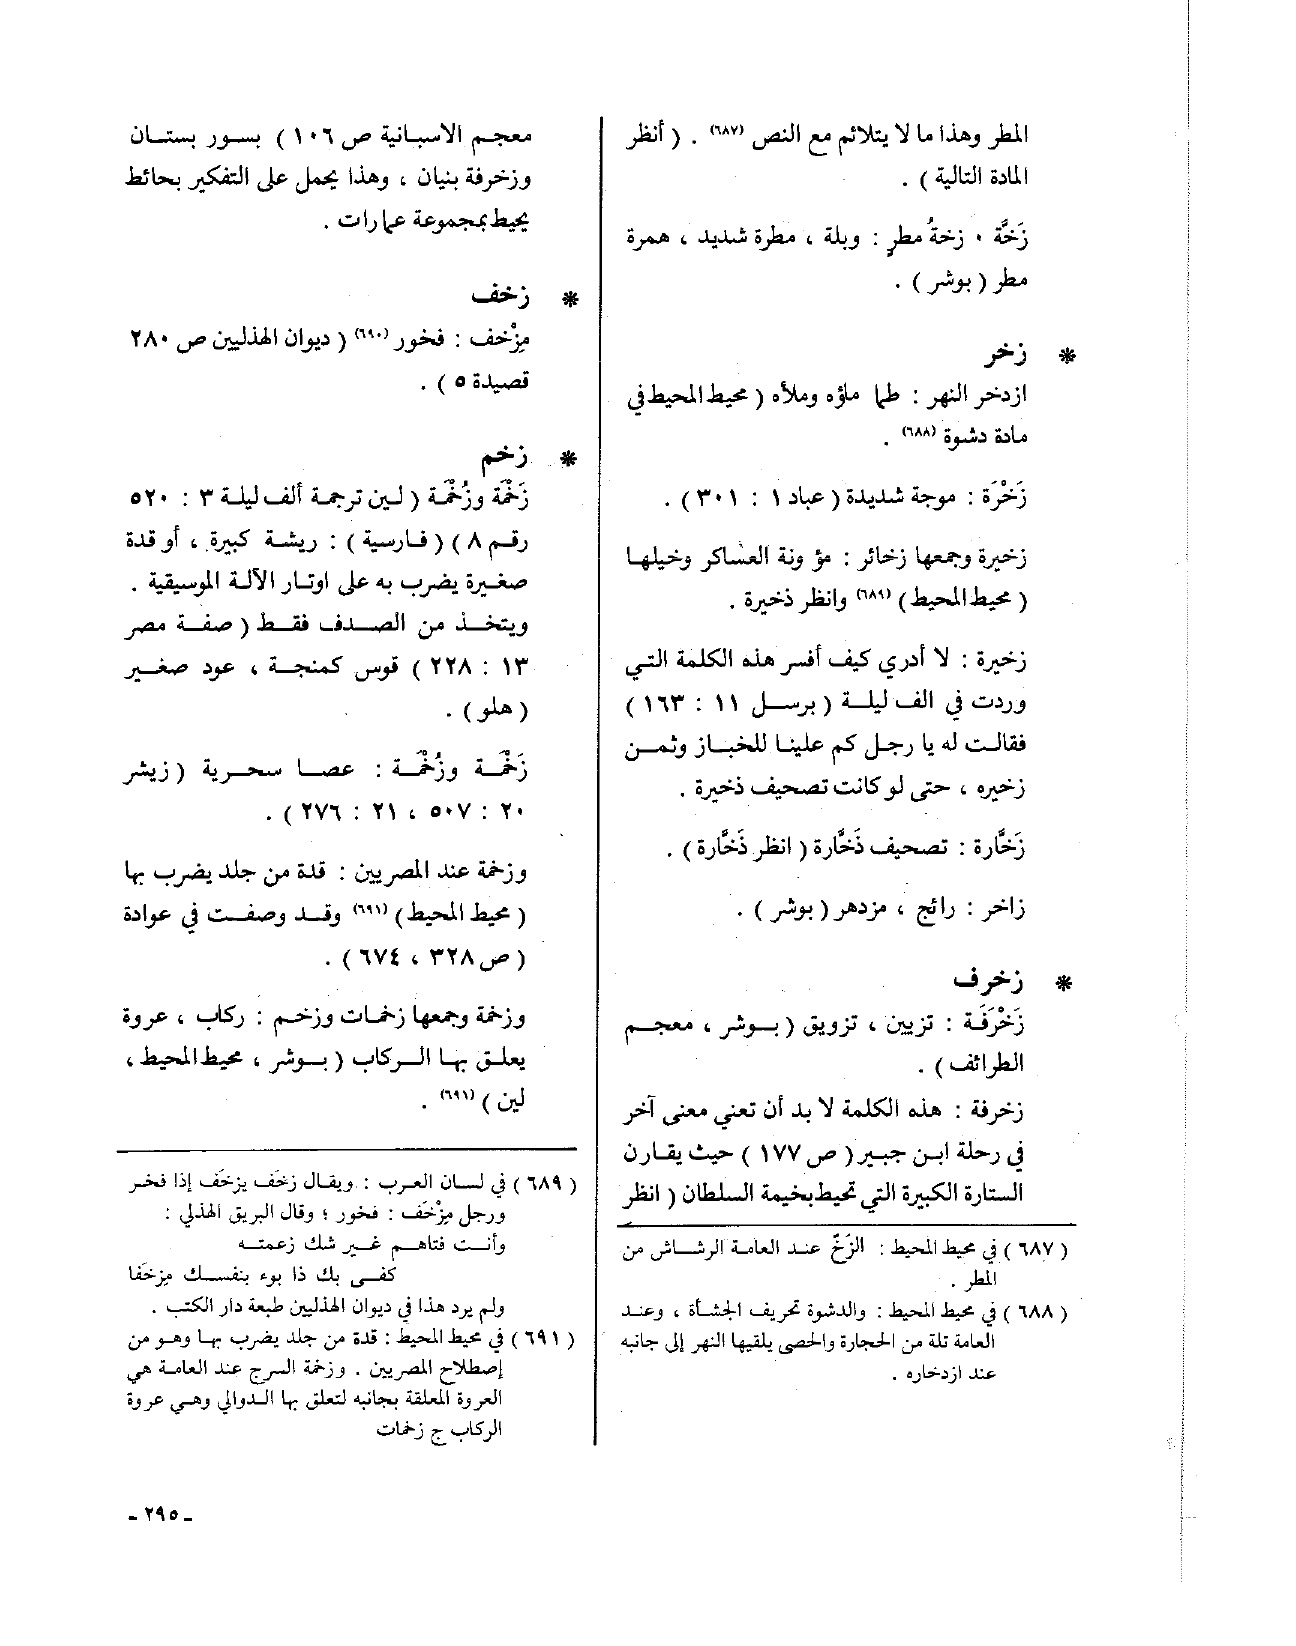 المطر وهذا ما لا يتلائم مع النص (٦٨٧) . ( أنظر
المادة التالية ) .
زَخَّة ٠ زخةُ مطرٍ : وبلة ، مطرة شديد ، همرة
مطر ( بوشر ) .
* زخر
ازدخر النهر : طما ماؤه وملأه ( محيط المحيط في
مادة دشوة (٦٨٨) .
زَخْرَة : موجة شديدة ( عباد ١ : ٣٠١ ) .
زخيرة وجمعها زخائر : مؤ ونة العساكر وخيلها
( محيط المحيط ) (٦٨٩) وانظر ذخيرة .
زخيرة : لا أدري كيف أفسر هذه الكلمة التي
وردت في الف ليلة ( برسل ١١ : ١٦٣ )
فقالت له يا رجل كم علينا للخباز وثمن
زخيره ، حتى لو كانت تصحيف ذخيرة .
زَخَّارة : تصحيف ذَخَّارة ( انظر ذَخَّارة ) .
زاخر : رائج ، مزدهر ( بوشر ) .
* زخرف
زَخْرَفَة : تزيين ، تزويق ( بوشر ، معجم
الطرائف ) .
زخرفة : هذه الكلمة لا بد أن تعني معنى آخر
في رحلة ابن جبير ( ص ١٧٧ ) حيث يقارن
الستارة الكبيرة التي تحيط بخيمة السلطان ( انظر
( ٦٨٧ ) في محيط المحيط : الزَّخّ عند العامة الرشاش من
المطر .
( ٦٨٨ ) في محيط المحيط : والدشوة تحريف الجشأة ، وعند
العامة تلة من الحجارة والحصى يلقيها النهر إلى جانبه
عند ازدخاره .
معجم الاسبانية ص ١٠٦ ) بسور بستان
وزخرفة بنيان ، وهذا يحمل على التفكير بحائط
يحيط بمجموعة عمارات .
* زخف
مِزْخف : فخور (٦٩٠) ( ديوان الهذليين ص ٢٨٠
قصيدة ٥ ) .
* زخم
زَخْمَّة وزُخْمَّة ( لين ترجمة ألف ليلة ٣ : ٥٢٠
رقم ٨ ) ( فارسية ) : ريشة كبيرة ، أو قدة
صغيرة يضرب به على اوتار الآلة الموسيقية .
ويتخذ من الصدف فقط ( صفة مصر
١٣ : ٢٢٨ ) قوس كمنجة ، عود صغير
( هلو ) .
زَخْمَّة وزُخْمَّة : عصا سحرية ( زيشر
٢٠ : ٥٠٧ ، ٢١ : ٢٧٦ ) .
وزخمة عند المصريين : قدة من جلد يضرب بها
( محيط المحيط ) (٦٩١) وقد وصفت في عوادة
( ص ٣٢٨ ، ٦٧٤ ) .
وزخمة وجمعها زخمات وزخم : ركاب ، عروة
يعلق بها الركاب ( بوشر ، محيط المحيط ،
لين ) (٦٩١) .
( ٦٨٩ ) في لسان العرب : ويقال زخَف يزخَف إذا فخر
ورجل مِزْخَف : فخور ؛ وقال البريق الهذلي :
وأنت فتاهم غير شك زعمته
كفى بك ذا بوء بنفسك مِزخفا
ولم يرد هذا في ديوان الهذليين طبعة دار الكتب .
( ٦٩١ ) في محيط المحيط : قدة من جلد يضرب بها وهو من
إصطلاح المصريين . وزخمة السرج عند العامة هي
العروة المعلقة بجانبه لتعلق بها الدوالي وهي عروة
الركاب ج زخمات
ـ ٢٩٥ ـ